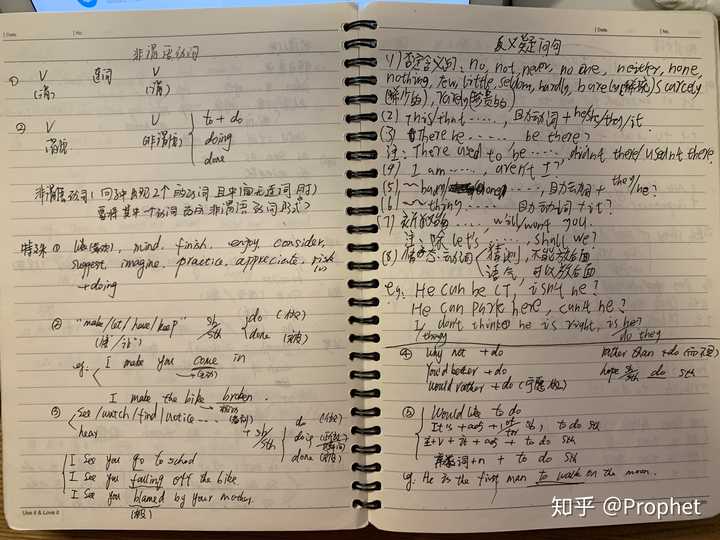 Date. No.
非谓语动词
① V 连词 V
(谓) (谓)
② V V to + do
谓语 (非谓语) doing
done
非谓语动词: 句子中出现2个的动词 且中间无连词 时
需将其中一个动词 变为 非谓语动词形式
特殊 ① like, mind, finish, enjoy consider,
suggest, imagine, practice, appreciate, risk
+doing
② "make/let/have/keep" sb/sth do (主动)
(使/让) done (被动)
eg. I make you come in
(主动)
I make the bike broken.
被动
③ See/watch/find/notice ...
hear + sb/sth do
doing
done (被)
I see you go to school
I see you falling off the bike.
I see you blamed by your mother.
(被)
Use it & Love it
Date. No.
反义疑问句
(1) 否定含义词: no, not, never, no one, neither, none,
nothing, few, little, seldom, hardly, scarcely
rarely
(2) This/that ......, 助动词+he/she/they/it.
(3) There be ......, be there?
注: There used to be ......, didn't there/usedn't there
(4) I am ......, aren't I?
(5) ......, 助动词 + they/he?
(6) ~~thing ......, 助动词 + it?
(7) ......, will/won't you.
注: 除 let's ......, shall we?
(8) 情态动词 猜测, 不能放后面
语气 可以放后面
eg: He can be CT, isn't he?
He can park here, can't he?
I don't think he is right, is he?
/they do they
④ Why not + do rather than +do (而不是)
You'd better + do hope do sth
Would rather + do (宁愿做)
⑤ Would like to do
It's + adj + of/for sb, to do sth
z + V + it + adj + to do sth
序数词+n + to do sth
eg. He is the first man to walk on the moon.
知乎 @Prophet